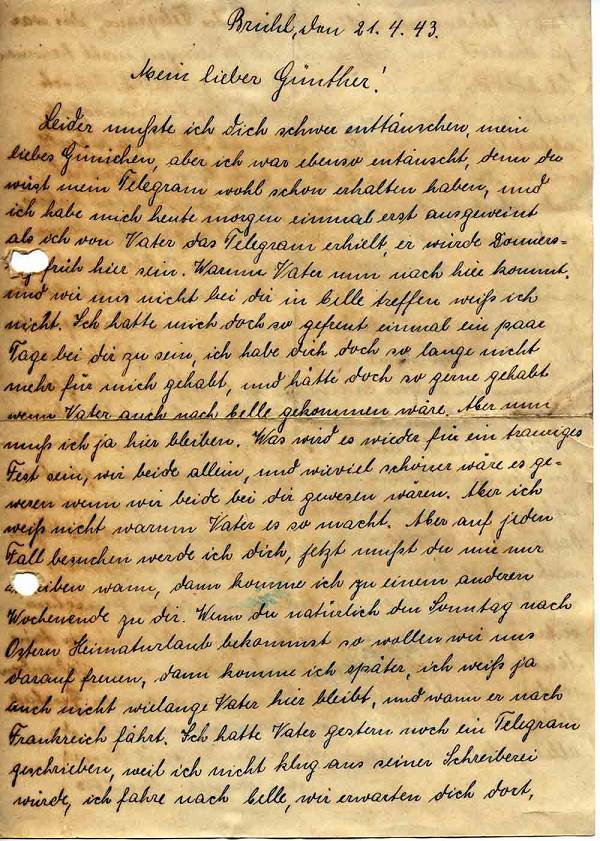 Brühl, den 21.4.43.
Mein lieber Günther!
Leider mußte ich dich schwer enttäuschen, mein
liebes Günichen, aber ich war ebenso entäuscht, denn du
wirst mein Telegram wohl schon erhalten haben, und
ich habe mich heute morgen einmal erst ausgeweint
als ich von Vater das Telegram erhielt, er würde Donners-
früh hier sein. Warum Vater nun nach hier kommt,
und wir uns nicht bei dir in Celle treffen weiß ich
nicht. Ich hatte mich doch so gefreut einmal ein paar
Tage bei dir zu sein, ich habe dich doch so lange nicht
mehr für mich gehabt, und hätte doch so gerne gehabt
wenn Vater auch nach Celle gekommen wäre. Aber nun
muß ich ja hier bleiben. Was wird es wieder für ein trauriges
Fest sein, wir beide allein, und wieviel schöner wäre es ge-
wesen wenn wir beide bei dir gewesen wären. Aber ich
weiß nicht warum Vater es so macht. Aber auf jeden
Fall besuchen werde ich dich, jetzt mußt du mir nur
schreiben wann, dann komme ich zu einem anderen
Wochenende zu dir. Wenn du natürlich den Sonntag nach
Ostern Heimaturlaub bekommst so wollen wir uns
darauf freuen, dann komme ich später, ich weiß ja
auch nicht wielange Vater hier bleibt, und wann er nach
Frankreich fährt. Ich hatte Vater gestern noch ein Telegram
geschrieben, weil ich nicht klug aus seiner Schreiberei
würde, ich fahre nach Celle, wir erwarten dich dort,